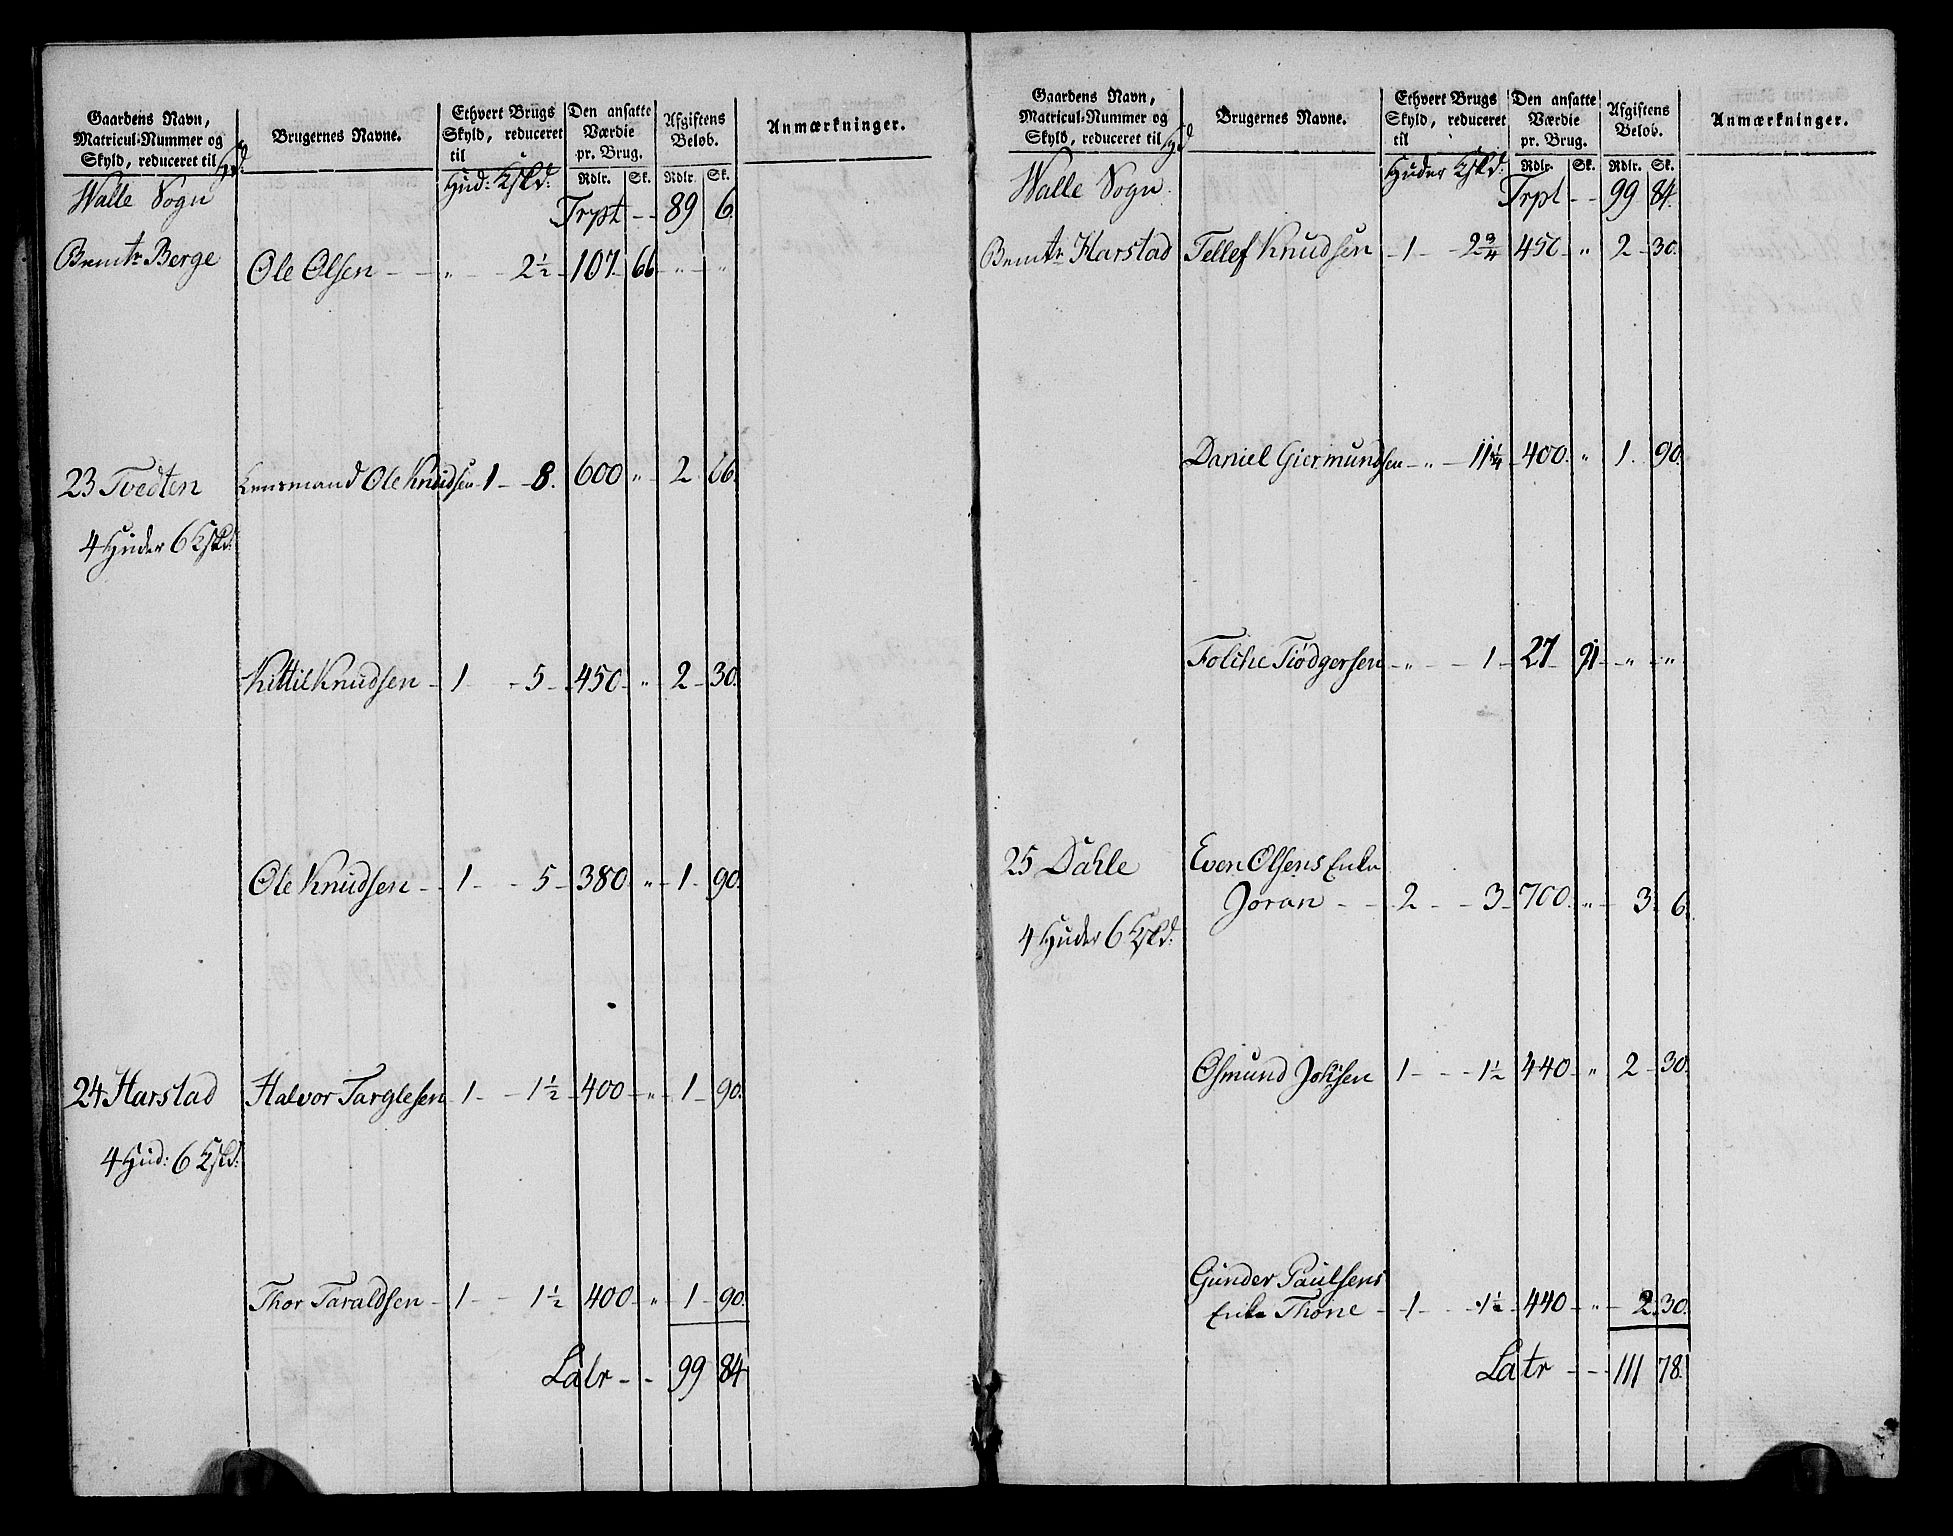 Gaardens Navn, Matricul-Nummer og Skyld, reduceret til Hd:
Brugernes Navne.
Ethvert Brugs Skyld, reduceret til Hud: Kskd:
Den ansatte Værdie pr. Brug.
Rdlr. Sk.
Afgiftens Beløb.
Rdlr. Sk.
Anmærkninger.
Walle Sogn Trpt -- 89 6.
Bemtr Berge Ole Olsen - - „ - - 2½ - 107 66 - „ - „
23 Tvedten Lensmand Ole Knudsen 1 - - 8. 600 „ - 2 66.
4 Huder 6 Kskd:
Kittil Knudsen - 1 - - 5 - 450 - „ - 2 - 30.
Ole Knudsen - - 1 - - 5 - 380 „ - 1 - 90.
24 Harstad Halvor Targlesen - 1 - - 1½ - 400 - „ - 1 - 90.
4 Hud: 6 Kskd:
Thor Taraldsen - 1 - - 1½ 400 - „ - 1 - 90.
Latr - - 99 84
Gaardens Navn, Matricul-Nummer og Skyld, reduceret til Hd
Brugernes Navne.
Ethvert Brugs Skyld, reduceret til Huder Kskd:
Den ansatte Værdie pr. Brug.
Rdlr. Sk.
Afgiftens Beløb.
Rdlr. Sk.
Anmærkninger.
Walle Sogn. Trpt - - 99 84.
Bemtr Harstad Tellef Knudsen - 1 - - 2¾ - 450 - „ - 2 - 30.
Daniel Giermundsen - „ - 11¼ - 400. „ 1. 90.
Folche Tiödgersen - „ - - 1 - 27 - 91 - „ - „
25 Dahle Even Olsens Enke
Joran - - - 2 - - 3 - 700. - „ - 3. 6.
4 Huder 6 Kskd:
Osmund Joksen 1 - - - 1½ - 440 - „ 2 - 30.
Gunder Paulsens
Enke Thone - - 1 - - - 1½ - 440 - „ - 2. 30.
Latr - - - 111 78.